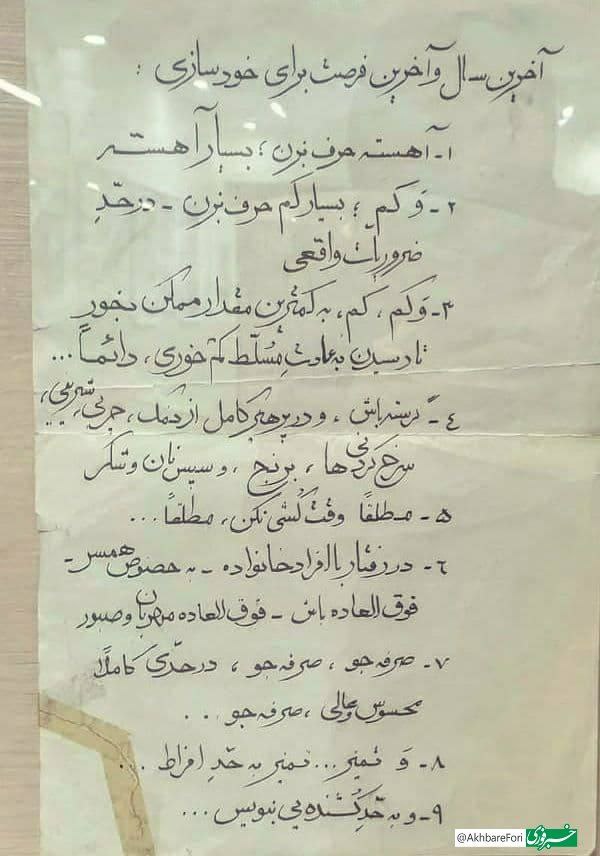 آخرین سال و آخرین فرصت برای خودسازی :
۱- آهسته حرف بزن ؛ بسیار آهسته
۲- وَ کم ؛ بسیار کم حرف بزن - در حدِّ
ضروریات واقعی
۳- وَ کم ، کم ، به کمترین مقدار ممکن بخور
تا رسیدن به عادتِ مُسلّط کم خوری ، دائماً ...
٤- گرسنه باش ، و در پرهیز کامل از نمک ، چربی ، شیرینی ،
سرخ کردنی ها ، برنج ، و سپس نان و شکر
۵- مطلقاً وقت کُشی نکن ، مطلقاً ...
٦- در رفتار با افراد خانواده - به خصوص همسر -
فوق العاده باش - فوق العاده مهربان و صبور
۷- صرفه جو ، صرفه جو ، در حدّی کاملاً
محسوس و عالی ، صرفه جو ...
۸- وَ تمیز ... تمیز به حدِّ افراط ...
۹- و به حدِّ کُشنده یی بنویس ...
@AkhbareFori
خبرفوری